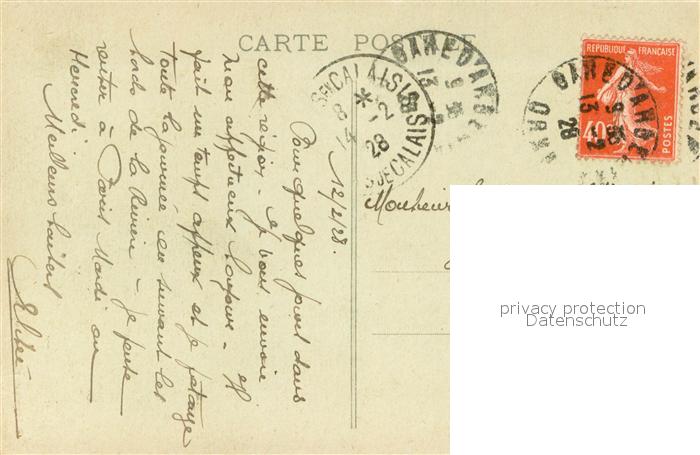 CARTE POSTALE
12/2/28.
Pour quelques jours dans
cette région – je vous envoie
mon affectueux bonjour – Il
fait un temps affreux et je patauge
toute la journée en suivant les
bords de la rivière – je pense
rentrer à Paris Mardi ou
Mercredi.
Meilleurs baisers
Monsieur
GARE D'ARS
13
28
ST CALAIS
8
-2
28
REPUBLIQUE FRANÇAISE
40c
GARE D'ARS
13
-2
28
privacy protection
Datenschutz